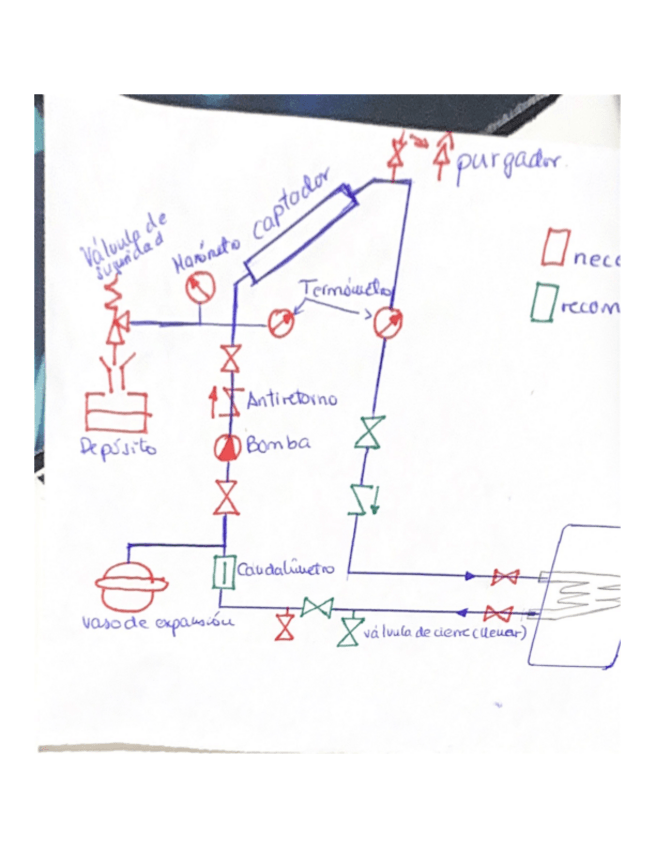 purgador.
captador
Válvula de
seguridad
Manómetro
Termómetro
nece
recom
Antiretorno
Bomba
Depósito
Caudalímetro
vaso de expansión
válvula de cierre (llenar)